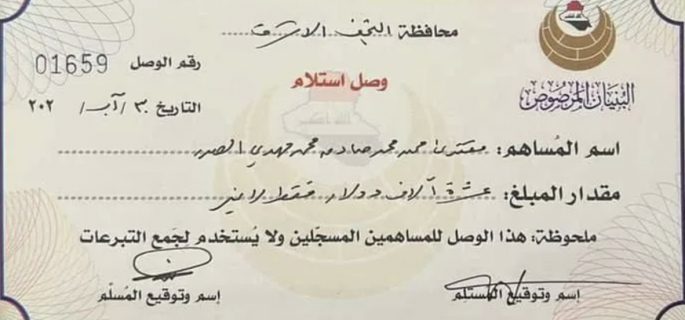 محافظة النجف الاشرف
البنيان المرصوص
رقم الوصل 01659
وصل استلام
التاريخ ٣٠/آب/ ٢٠٢
اسم المُساهم: مقتدى محمد محمد صادق محمد مهدي الصدر
مقدار المبلغ: عشرة آلاف دولار فقط لا غير
ملحوظة: هذا الوصل للمساهمين المسجّلين ولا يُستخدم لجَمع التبرعات
إسم وتوقيع المستلم
إسم وتوقيع المُسلّم